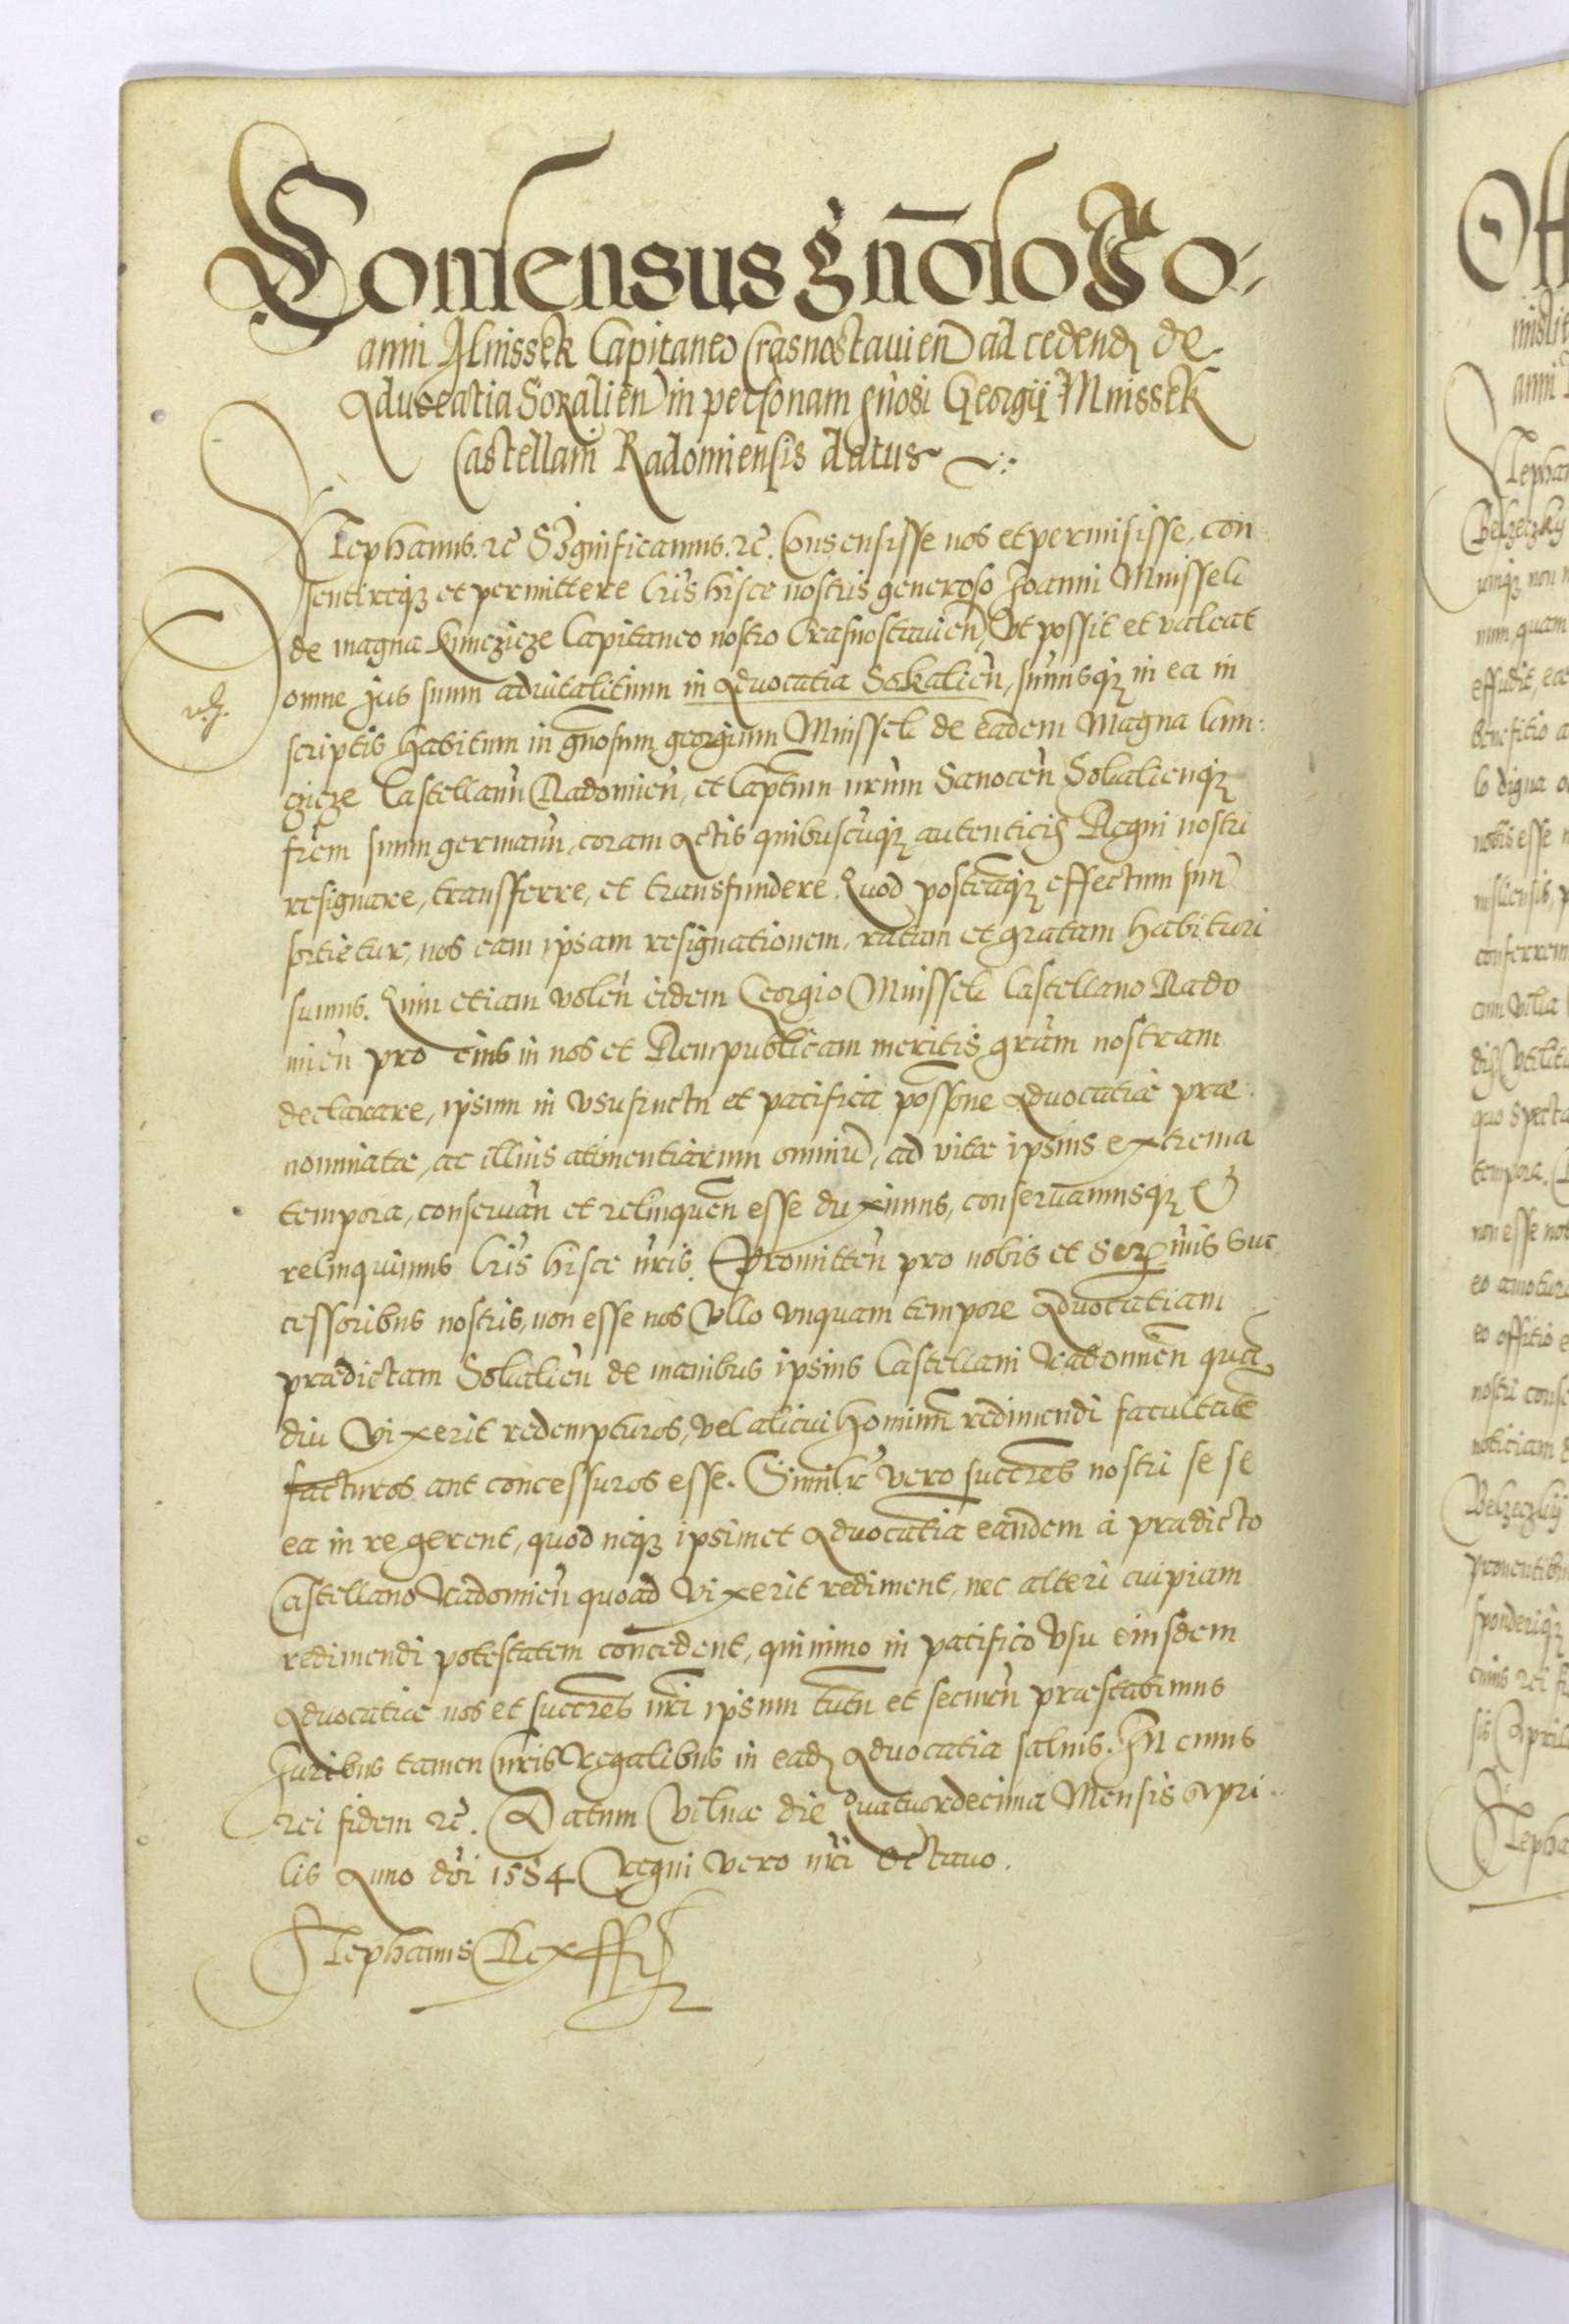 Consensus gn̄oso Io-
anni Mnissek Capitaneo Crasnostauien̄ ad cedend de
Aduocatia Sokalien̄ in personam gn̄osi Georgij Mnissek
Castellani Radomiensis datus
Stephanus. rc̄ Significamus. rc̄. Consensisse nos et permisisse, con
sentireqȝ et permittere lr̄is hisce nostris generoso Joanni Mnissek
de magna Kunczicze Capitaneo nostro Crasnostauien̄, Vt possit et valeat
omne jus suum aduitalitium in Aduocatia Sokalien̄, sum̄usqȝ in ea in
scriptis habitum in gn̄osum georgium Mnissek de eadem Magna Cun:
czicze Castellanū Radomien̄, et Captm̄ nr̄um Sanocen̄ Sokalienqȝ
fr̄em suum germanū, coram Actis quibuscūqȝ autenticis Regni nostri
resignare, transferre, et transfundere. Quod posteaqȝ effectum suū
sortietur, nos eam ipsam resignationem, ratam et gratam habituri
sumus. Quin etiam volen̄ eidem Georgio Mnissek Castellano Rado
mien̄ pro eius in nos et Rempublicam meritis gr̄am nostram
declarare, ipsum in vsufructu et pacifica possōne Aduocatiæ præ
nominatæ, ac illius attinentiarum omniū, ad vitæ ipsius extrema
tempora, conseruan̄ et relinquen̄ esse duximus, conseruamusqȝ et
relinquimus lr̄is hisce nr̄is. Promitten̄ pro nobis et Serᵐⁱˢ suc
cessoribus nostris, non esse nos vllo vnquam tempore Aduocatiam
prædictam Sokalien̄ de manibus ipsius Castellani Radomien̄ quā
diu vixerit redempturos, vel alicui hominū redimendi facultatē
facturos aut concessuros esse. Similr̄ vero succr̄es nostri se se
ea in re gerent, quod neqȝ ipsimet Aduocatiā eandem à prædicto
Castellano Radomien̄ quoad vixerit rediment, nec alteri cuipiam
redimendi potestatem concedent, quinimo in pacifico vsu eiusdem
Aduocatiæ nos et succr̄es nr̄i ipsum tutū et securū præstabimus
Juribus tamen nr̄is Regalibus in ead Aduocatia saluis. In cuius
rei fidem rc̄. Datum Vilnæ die Quatuordecima Mensis Apri
lis Anno dn̄i 1584 Regni vero nr̄i Octauo.
Stephanus Rex sst